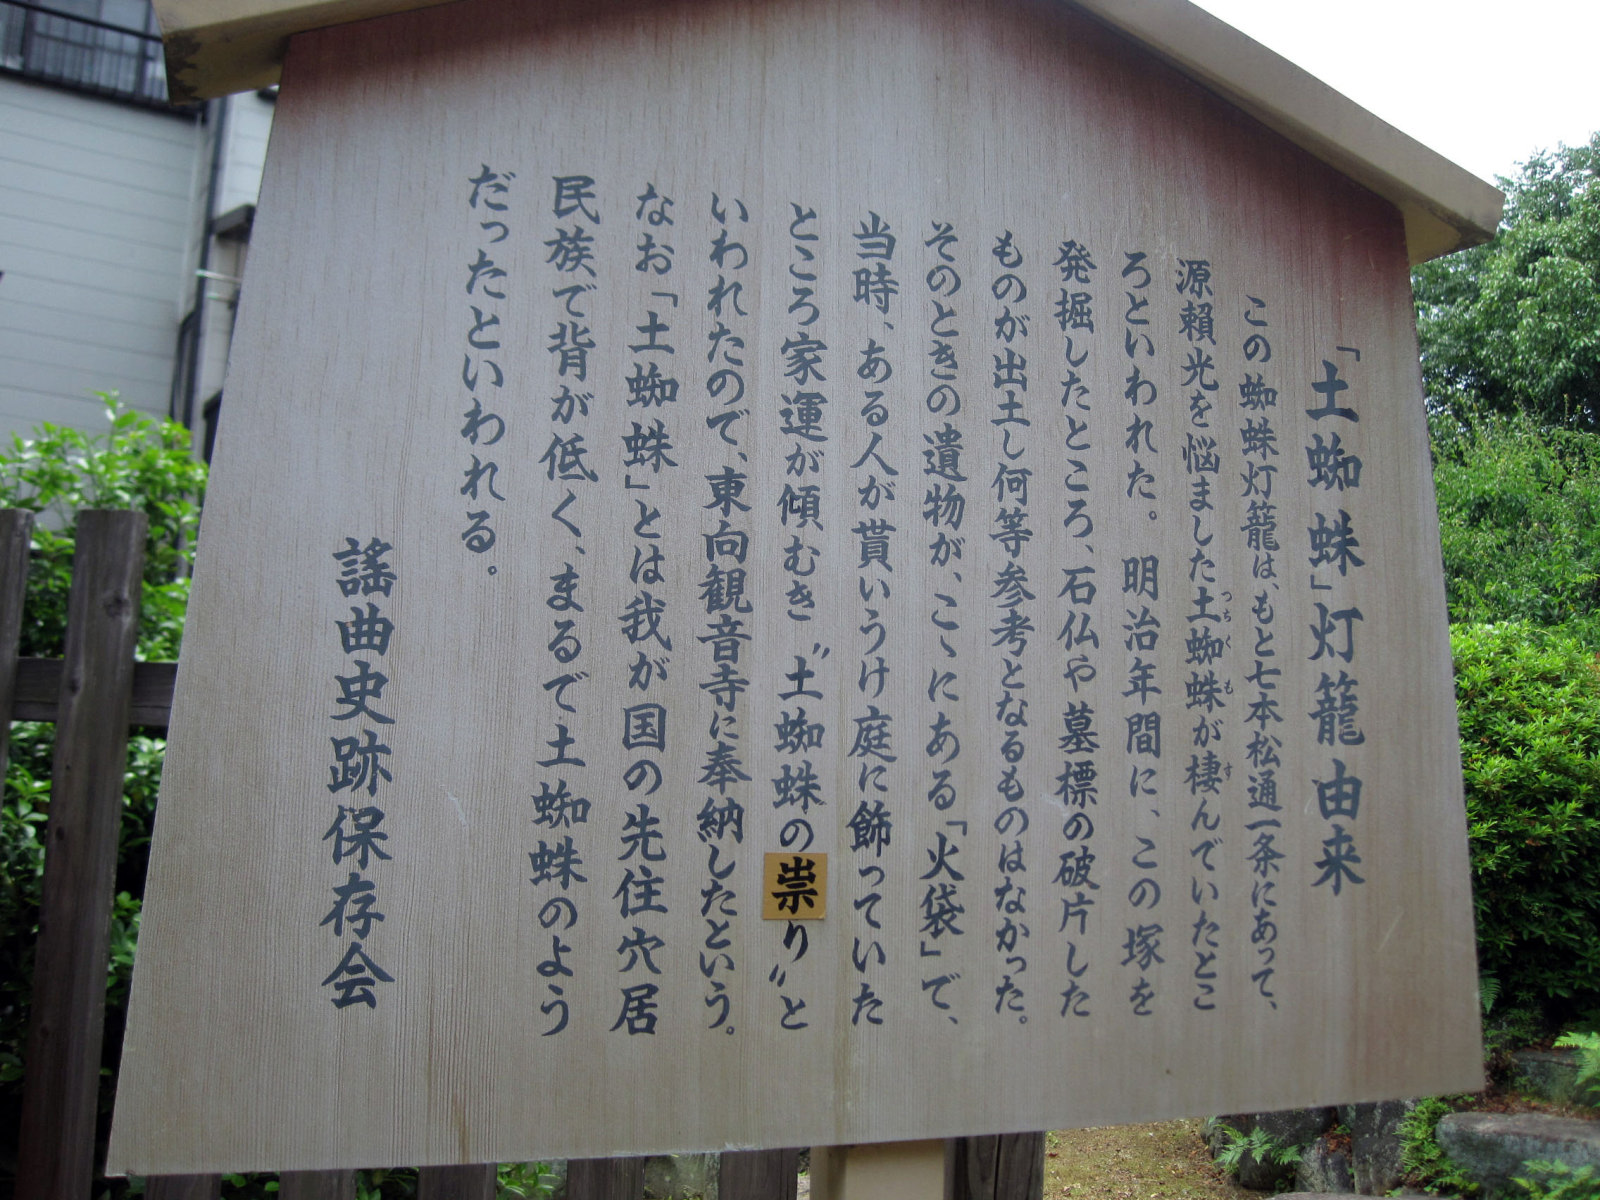 「土蜘蛛」灯籠由来
この蜘蛛灯籠は、もと七本松通一条にあって、
源頼光を悩ました土蜘蛛が棲んでいたとこ
つちくも
す
ろといわれた。明治年間に、この塚を
発掘したところ、石仏や墓標の破片した
ものが出土し何等参考となるものはなかった。
そのときの遺物が、こゝにある「火袋」で、
当時、ある人が貰いうけ庭に飾っていた
ところ家運が傾むき〝土蜘蛛の祟り〟と
いわれたので、東向観音寺に奉納したという。
なお「土蜘蛛」とは我が国の先住穴居
民族で背が低く、まるで土蜘蛛のよう
だったといわれる。
謡曲史跡保存会